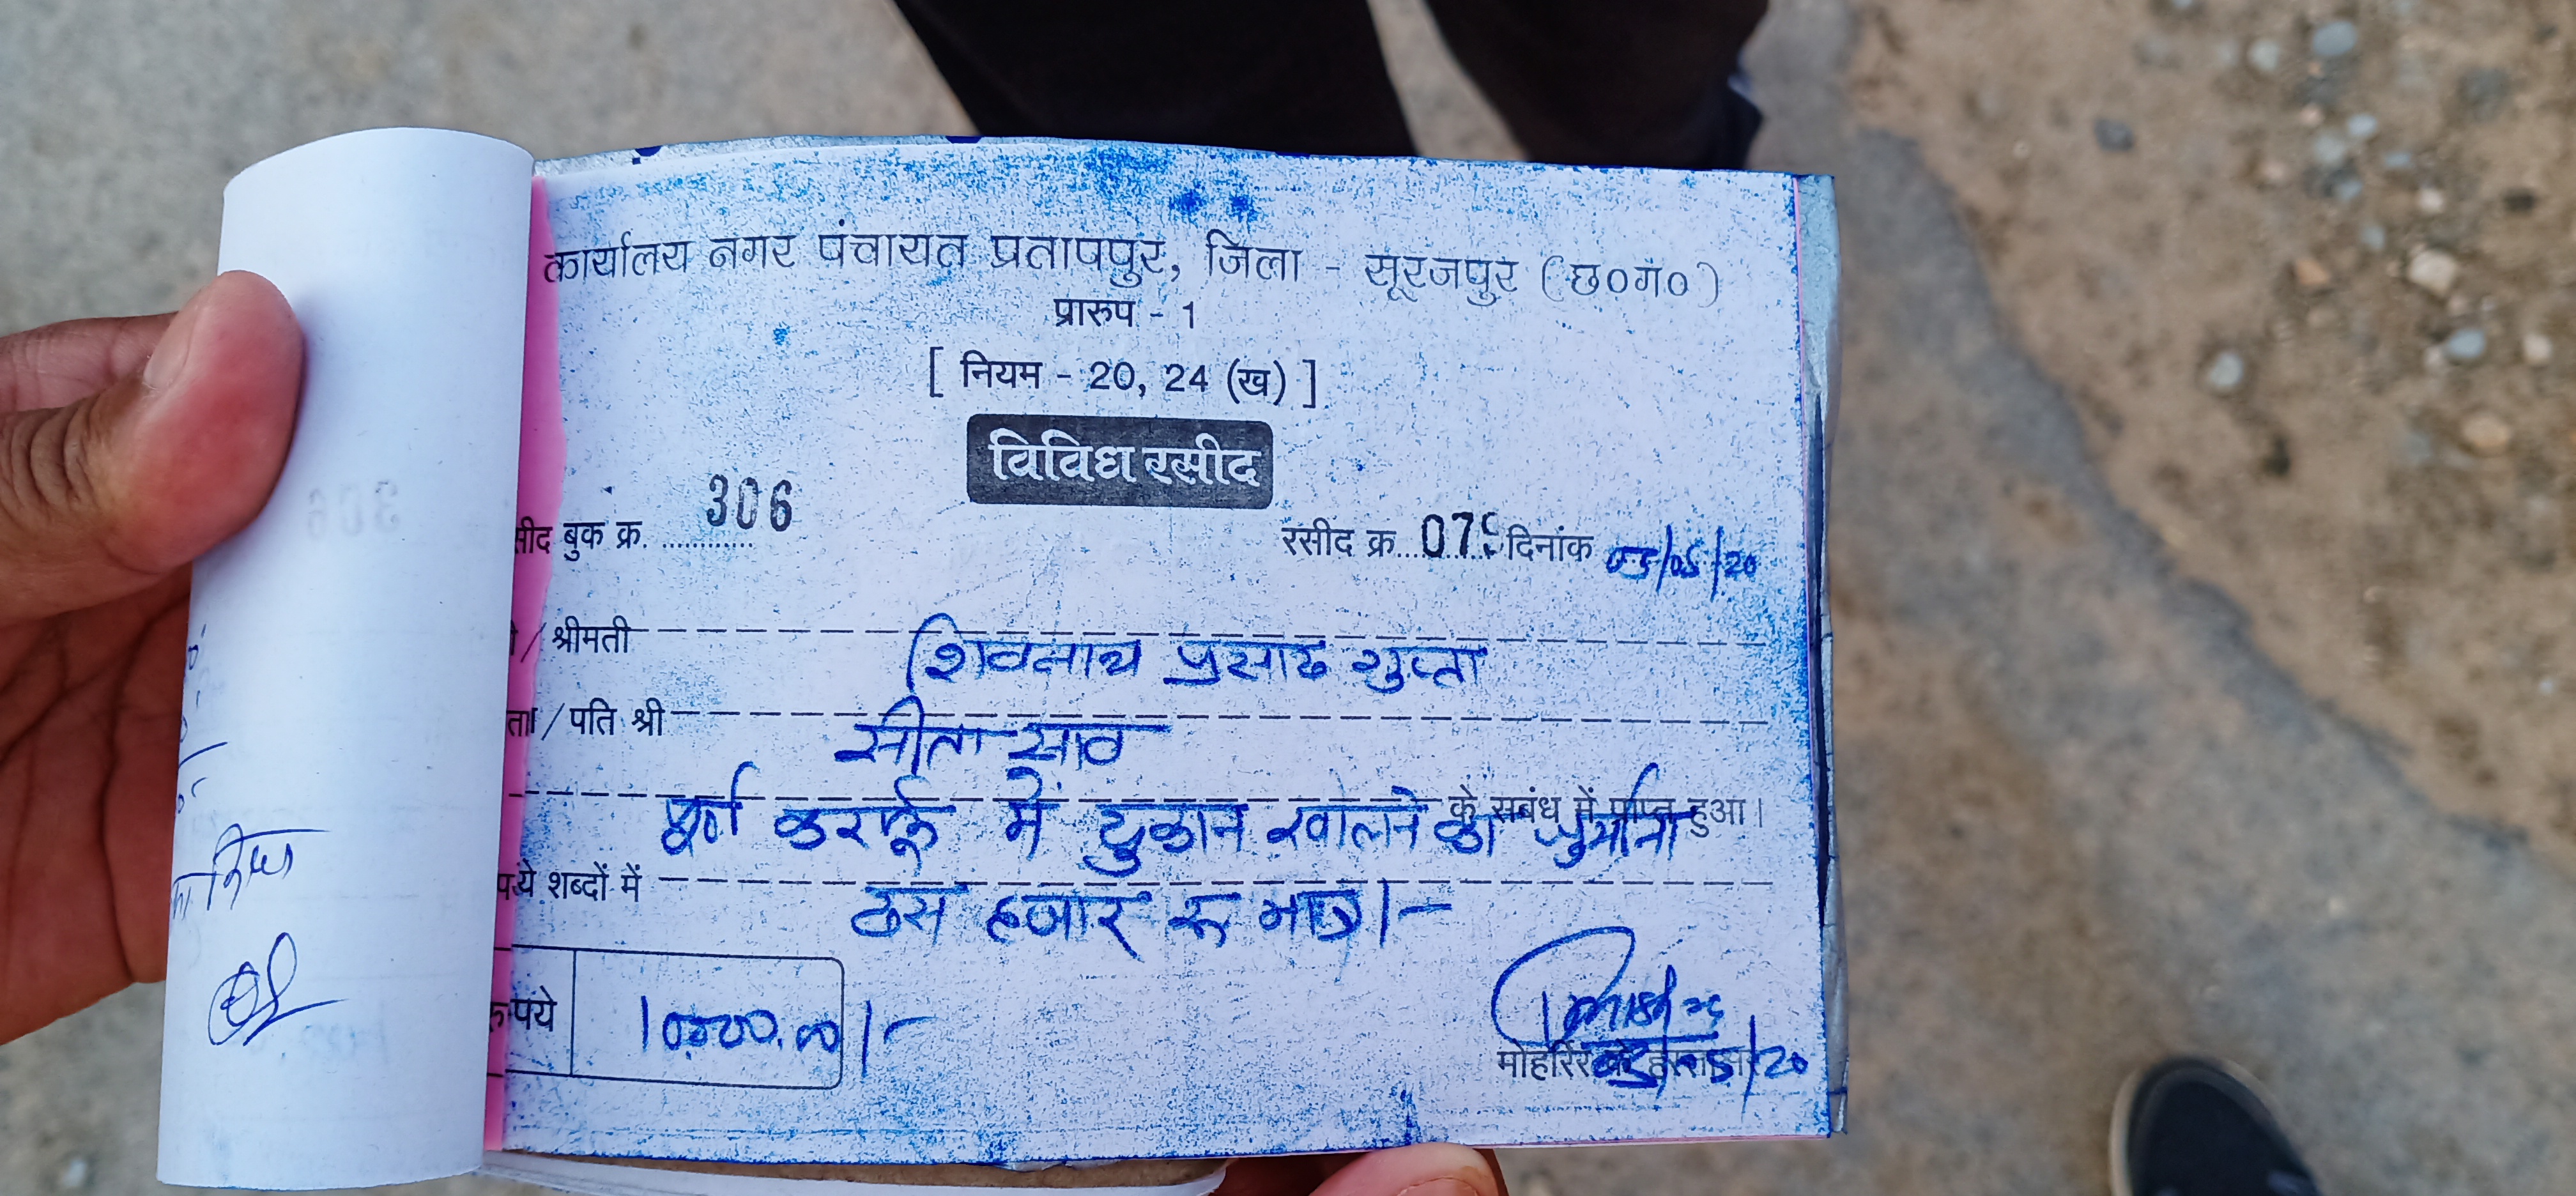 कार्यालय नगर पंचायत प्रतापपुर, जिला - सूरजपुर (छ०ग०)
प्रारुप - 1
[ नियम - 20, 24 (ख) ]
विविध रसीद
306
सीद बुक क्र. ............ रसीद क्र. 079 दिनांक
/ श्रीमती शिवनाथ प्रसाद गुप्ता
ता / पति श्री सीता साव
पूर्ण कर्फ्यू में दुकान खोलने का जुर्माना के सबंध में प्राप्त हुआ।
पये शब्दों में दस हजार रू मात्र।-
रुपये 10000.00/-
मोहर्रिर के हस्ताक्षर